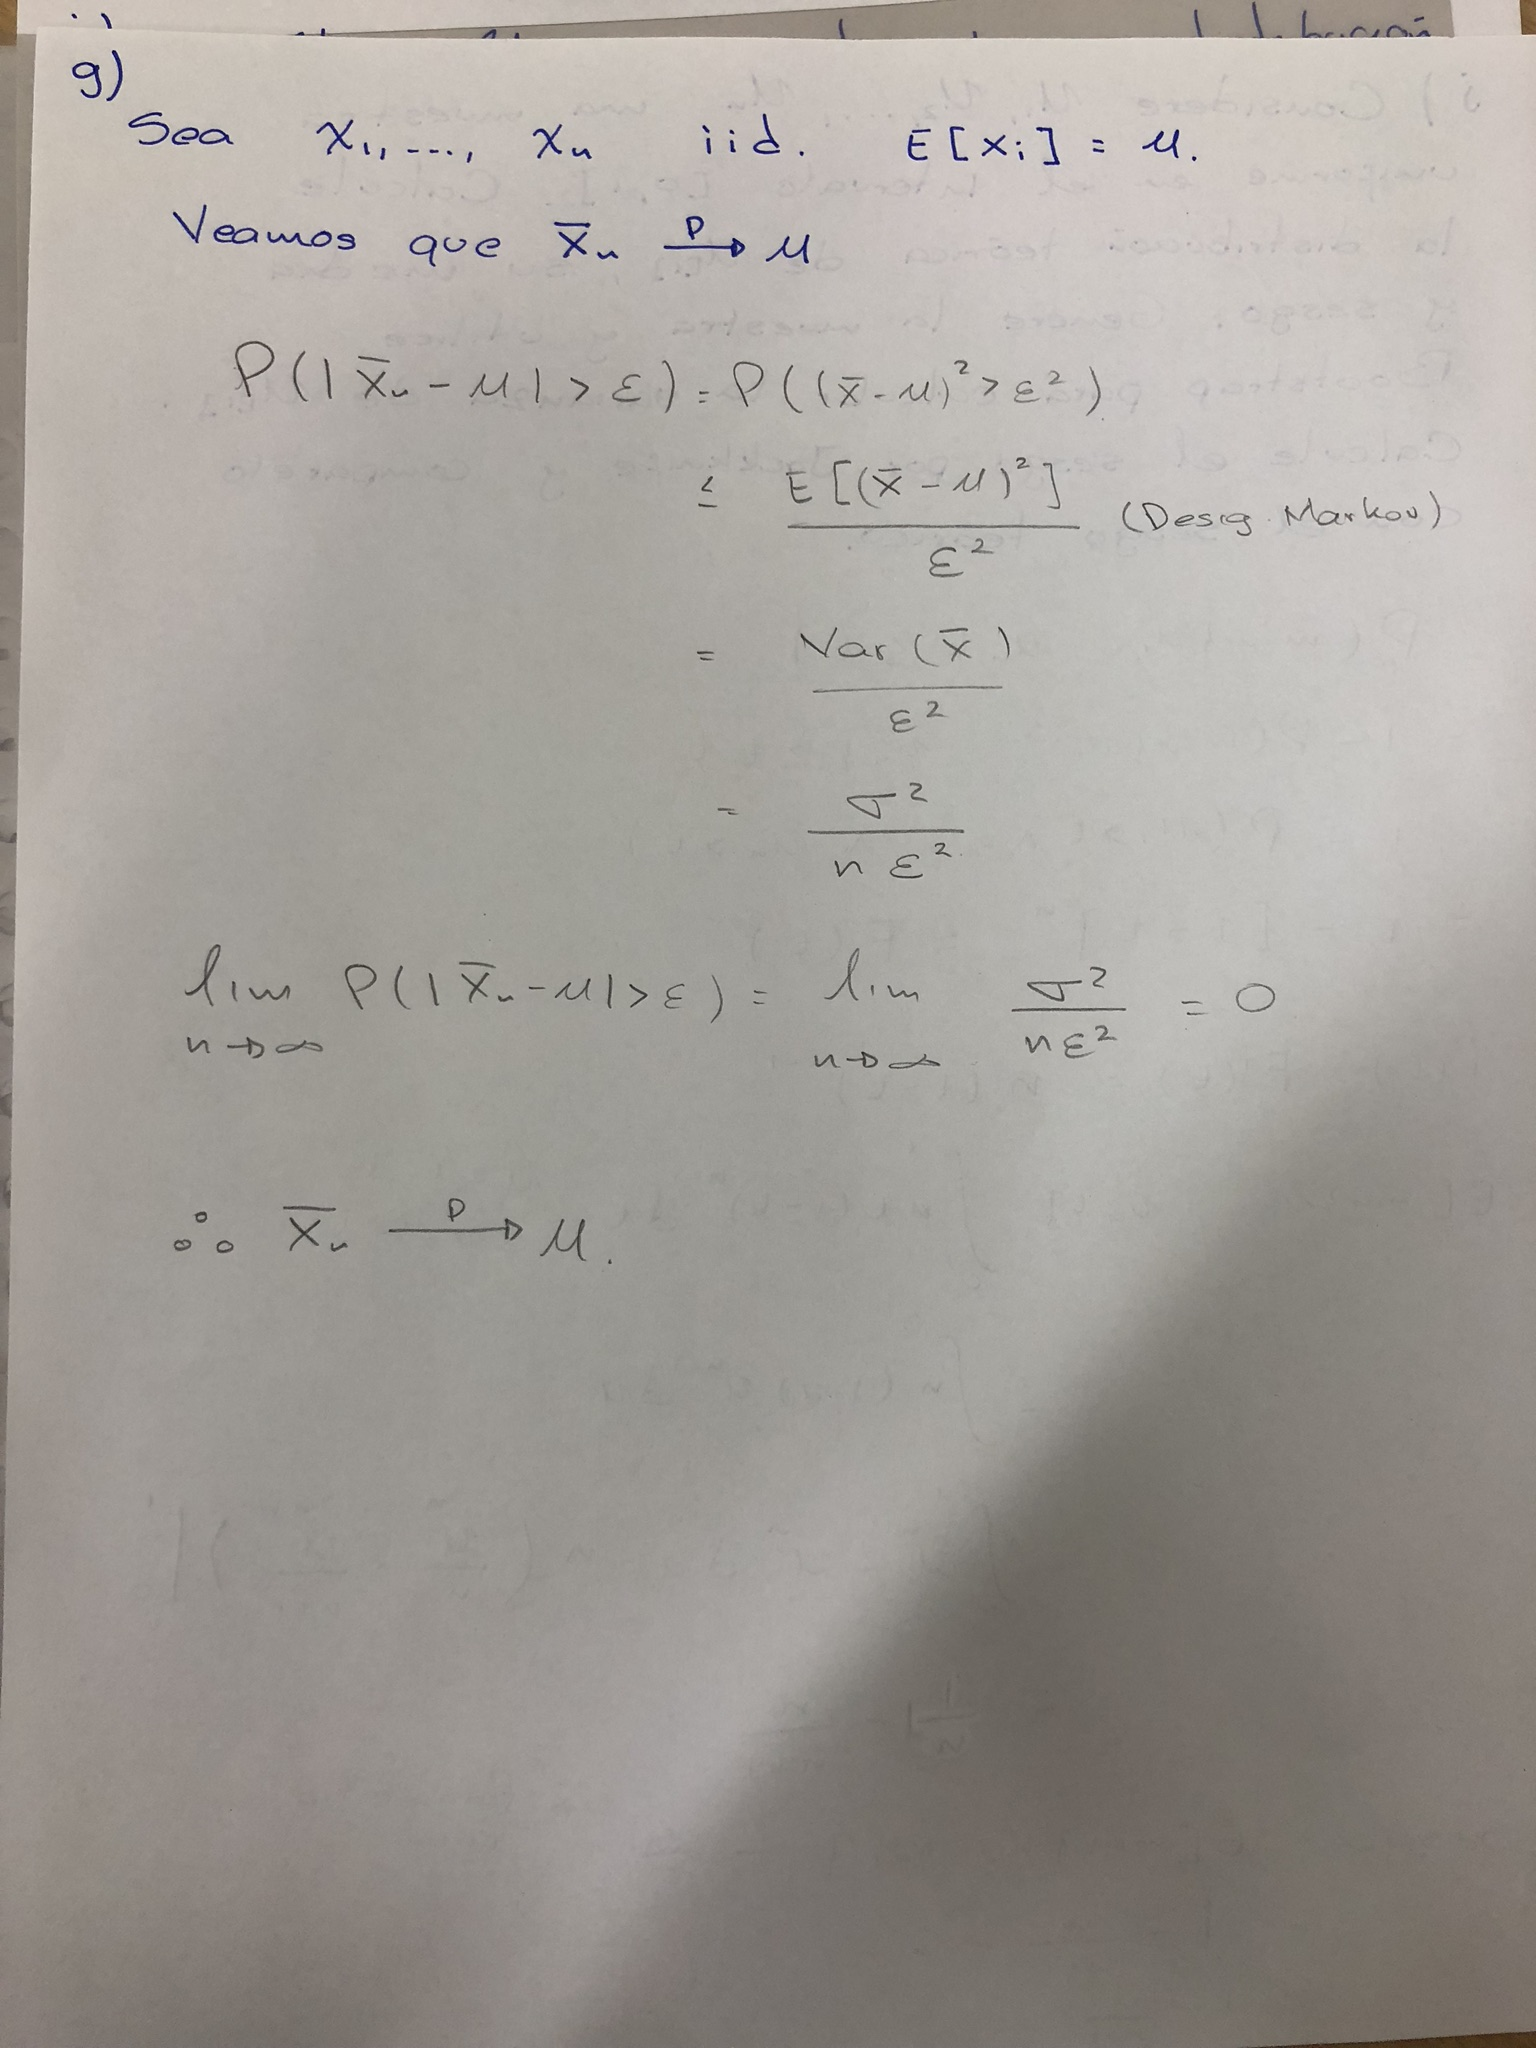 g)
Sea X₁, ..., Xₙ iid. E[Xᵢ] = μ.
Veamos que X̄ₙ →ᴾ μ
P(|X̄ₙ - μ| > ε) = P((x̄ - μ)² > ε²)
≤ E[(x̄ - μ)²] / ε² (Desig. Markov)
= Var(x̄) / ε²
= σ² / n ε²
lim n→∞ P(|X̄ₙ - μ| > ε) = lim n→∞ σ² / nε² = 0
∴ X̄ₙ →ᴾ μ.